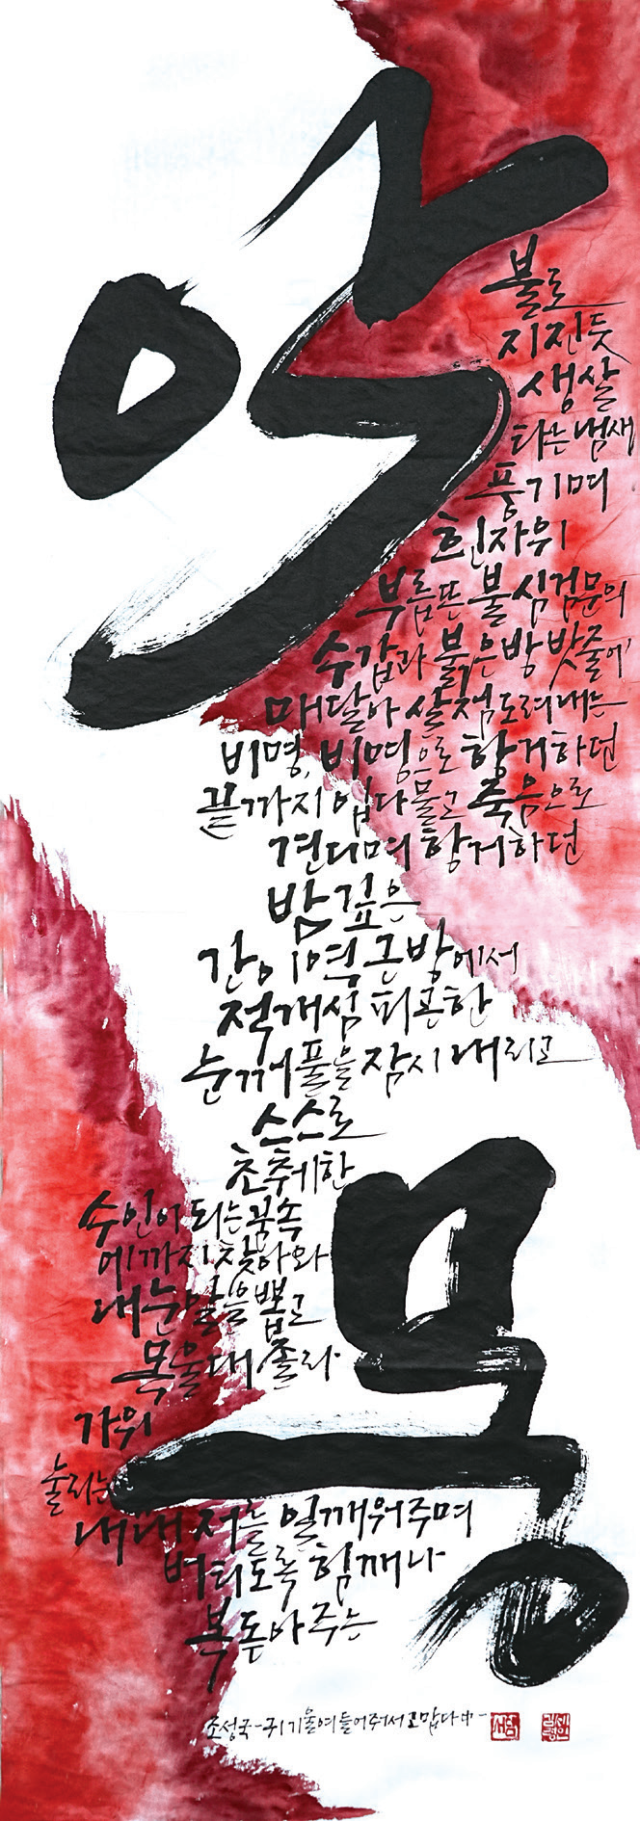 악
몽
불로
지진 듯
생살
타는 냄새
풍기며
흰자위
부릅뜬 불심검문의
수갑과 붉은 방 밧줄에
매달아 살점 도려내는
비명, 비명으로 항거하던
끝까지 입 다물고 죽음으로
견디며 항거하던
밤 깊은
간이역 근방에서
적개심 피곤한
눈꺼풀을 잠시 내리고
스스로
초췌한
수인이 되는 꿈속
에까지 찾아와
내 눈알을 뽑고
목울대 졸라
가위
눌리는
내내 저를 일깨워주며
버티도록 힘깨나
북돋아 주는
조성국-귀 기울여 들어줘서 고맙다 中-